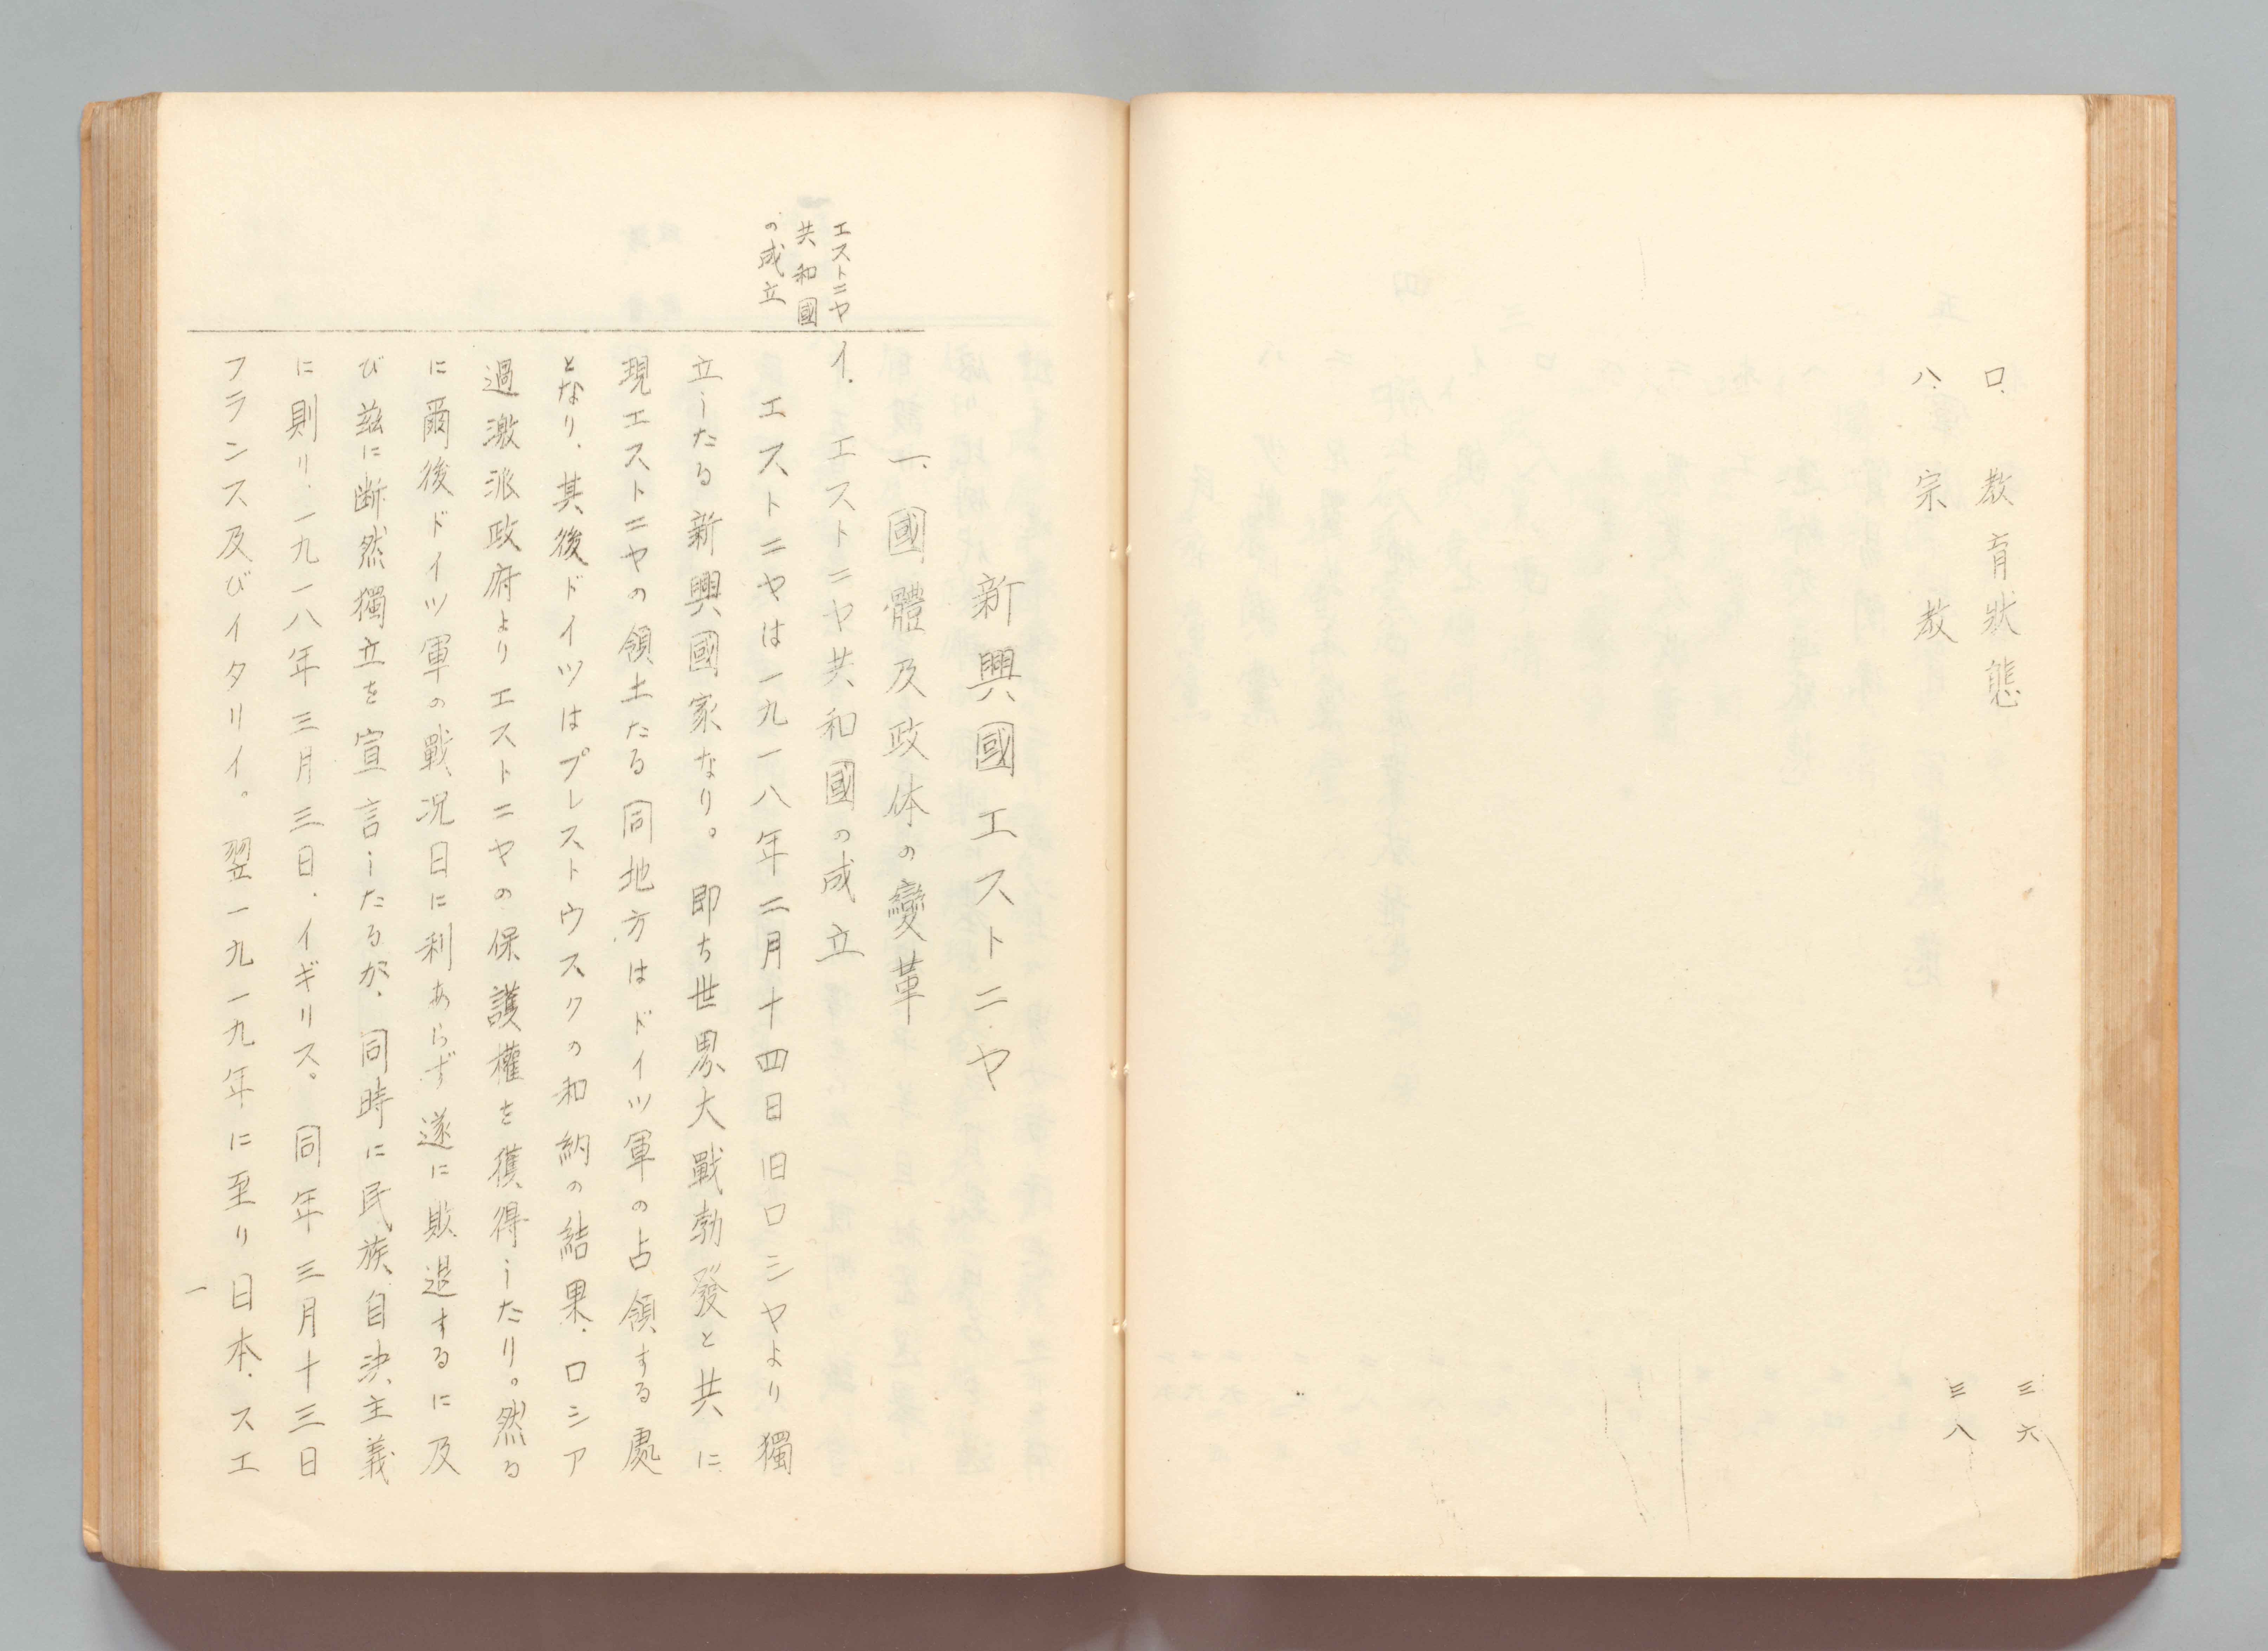 ロ. 教育狀態 三六
ハ. 宗教 三八
新興國エストニヤ
一、國體及政体の變革
エストニヤ
共和國
の成立
イ. エストニヤ共和國の成立
エストニヤは一九一八年二月十四日旧ロシヤより獨
立したる新興國家なり。即ち世界大戰勃發と共に
現エストニヤの領土たる同地方はドイツ軍の占領する處
となり、其後ドイツはブレストウスクの和納の結果、ロシア
過激派政府よりエストニヤの保護權を獲得したり。然る
に爾後ドイツ軍の戰況日に利あらず遂に敗退するに及
び茲に断然獨立を宣言したるが、同時に民族自決主義
に則り、一九一八年三月三日、イギリス。同年三月十三日
フランス及びイタリイ。翌一九一九年に至り日本、スエ
一